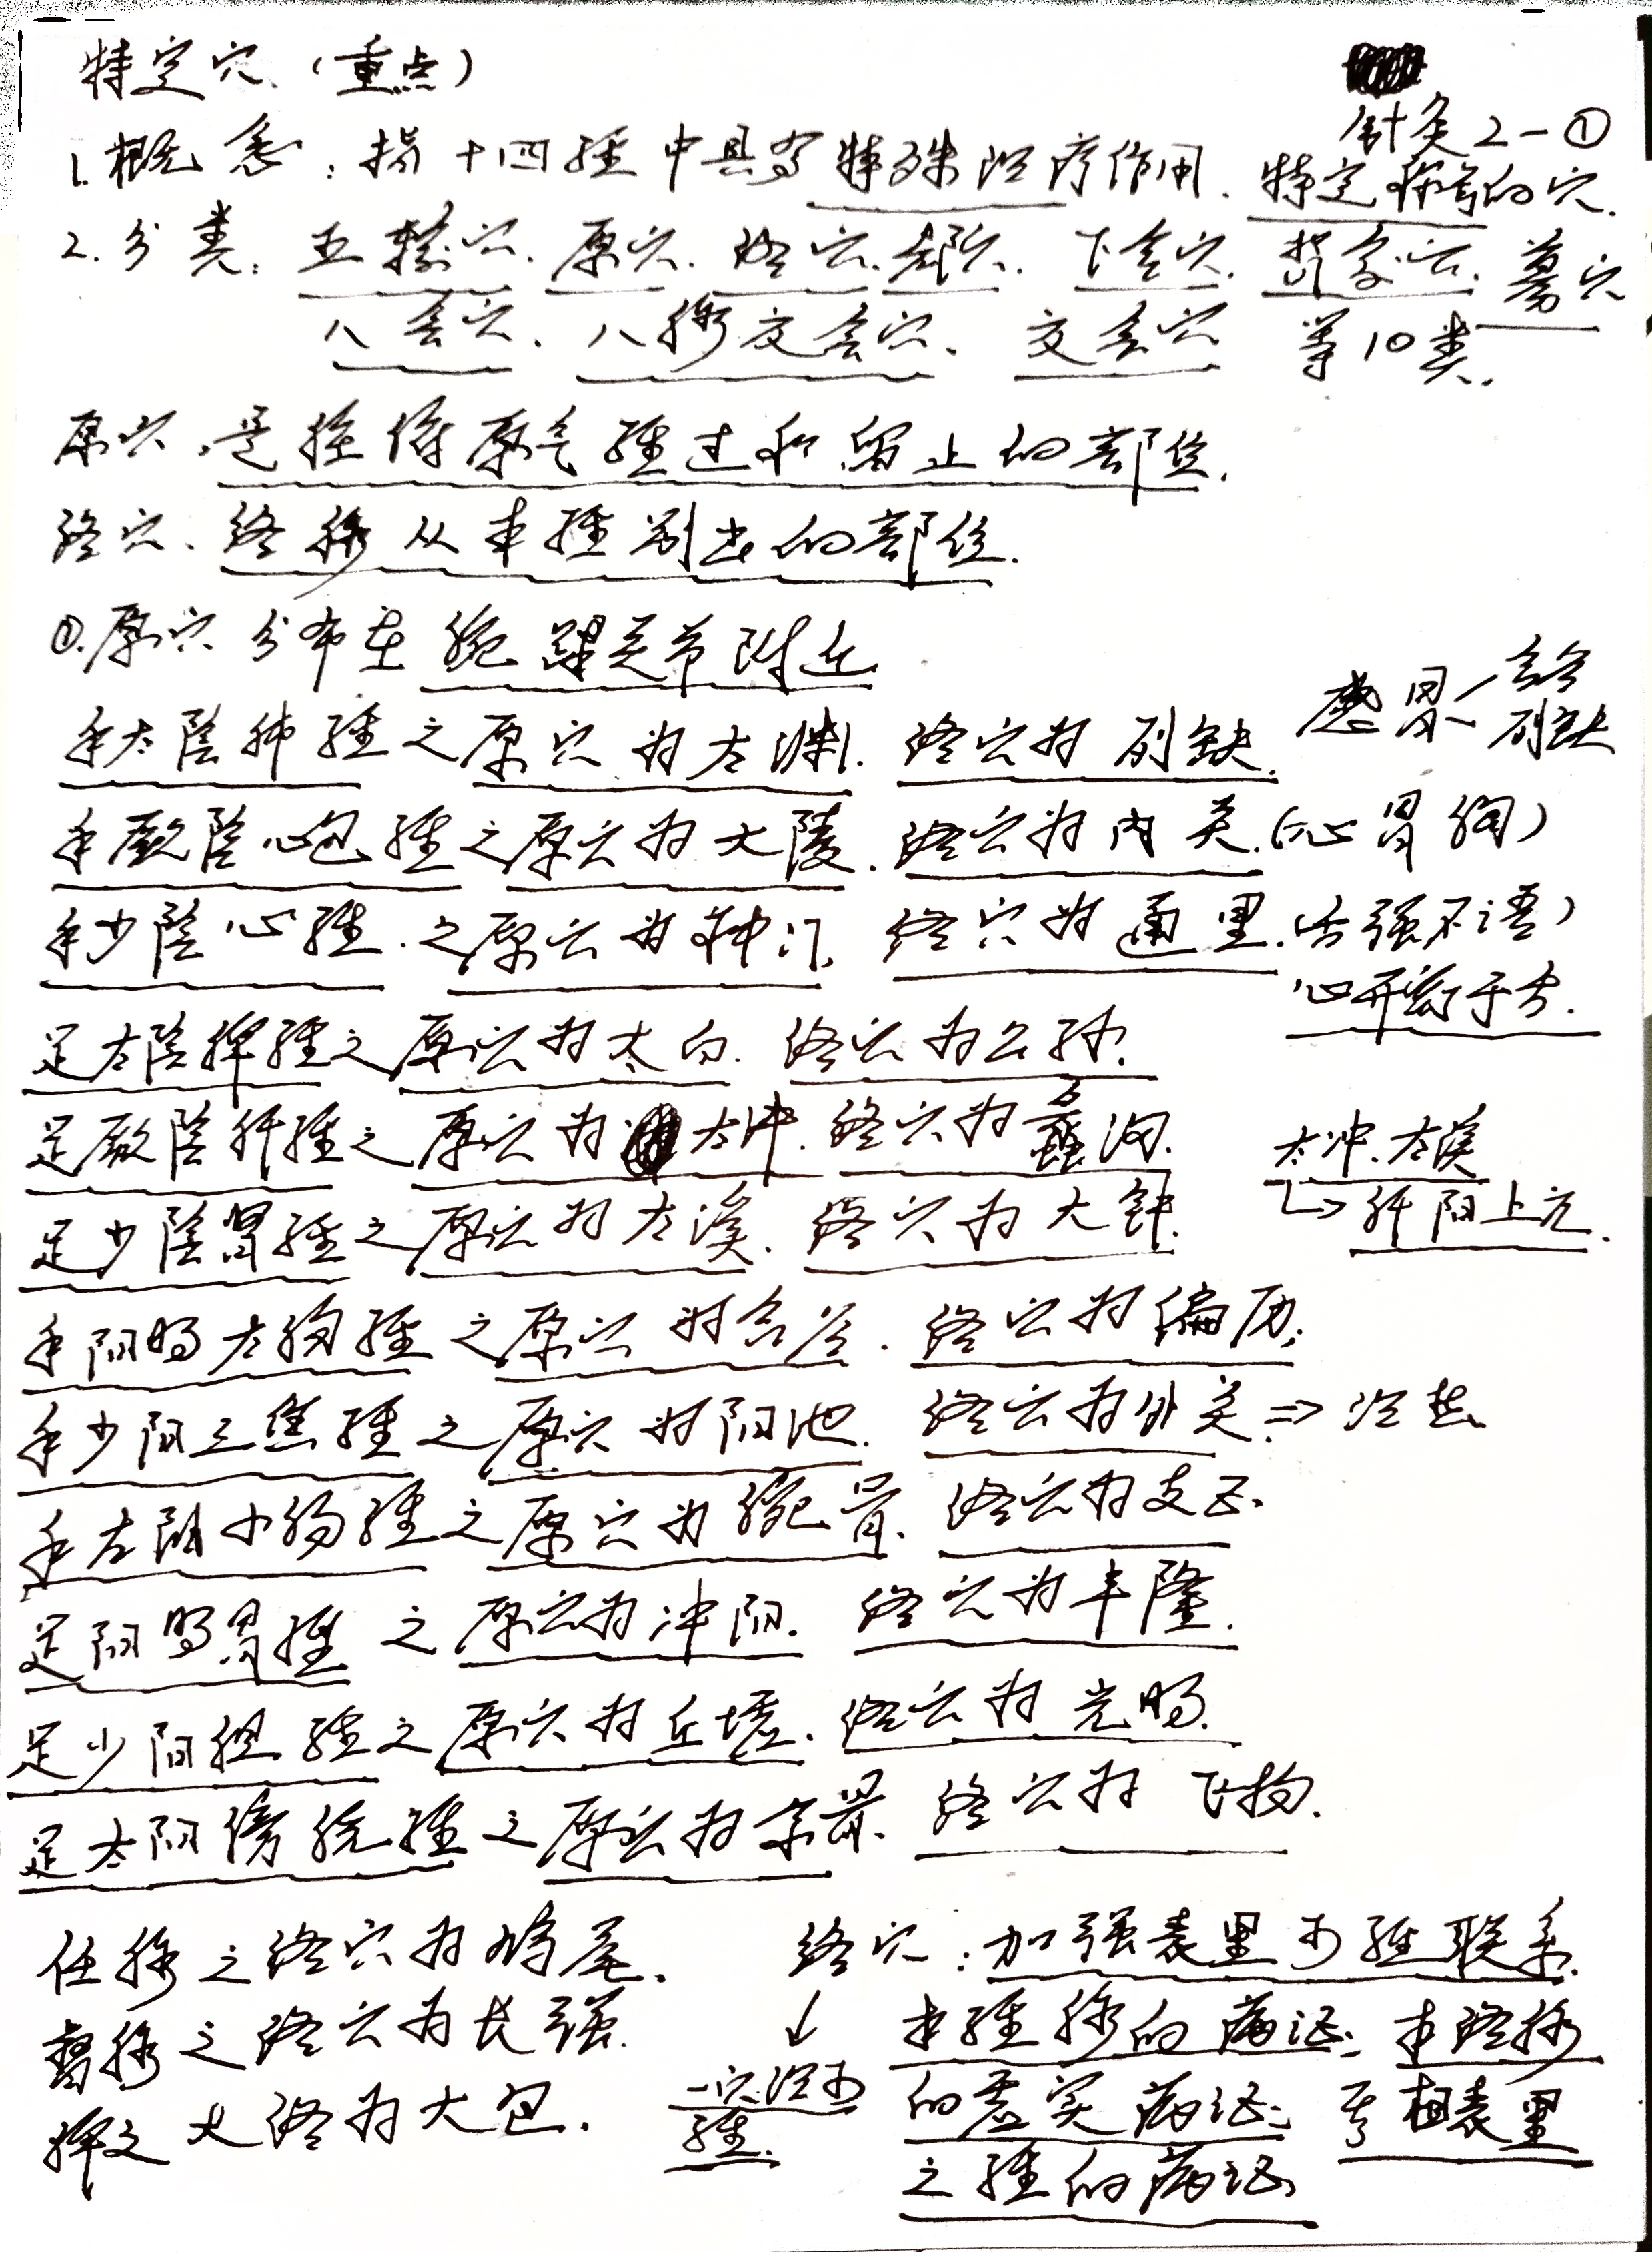 特定穴（重点）
针灸2-①
1.概念：指十四経中具有特殊治疗作用.特定称号的穴.
2.分类：五输穴.原穴.络穴.郄穴.下合穴.背俞穴.募穴
八会穴.八脉交会穴.交会穴等10类.
原穴.是脏俯原气経过和留止的部位.
络穴.络脉从本経别出的部位.
①.原穴分布在腕踝关节附近
手太陰肺経之原穴为太渊.络穴为列缺.
感冒 合谷
列缺
手厥陰心包経之原穴为大陵.络穴为内关.（心胃胸）
手少陰心経.之原穴为神门.络穴为通里.舌强不语）
心开窍于舌.
足太陰脾経之原穴为太白.络穴为公孙.
足厥陰肝経之原穴为太冲.络穴为蠡沟.
太冲、太溪
↳肝阳上亢.
足少陰腎経之原穴为太溪.络穴为大钟.
手阳明大肠経之原穴为合谷.络穴为偏历.
手少阳三焦経之原穴为阳池.络穴为外关.⇒治热
手太阳小肠経之原穴为腕骨.络穴为支正.
足阳明胃経之原穴为冲阳.络穴为丰隆.
足少阳胆経之原穴为丘墟.络穴为光明.
足太阳膀胱経之原穴为京骨.络穴为飞扬.
任脉之络穴为鸠尾.
督脉之络穴为长强.
脾之大络为大包.
络穴：加强表里两経联系.
↓
一穴治两
経.
本経脉的病证;本络脉
的虚实病证;与相表里
之経的病证